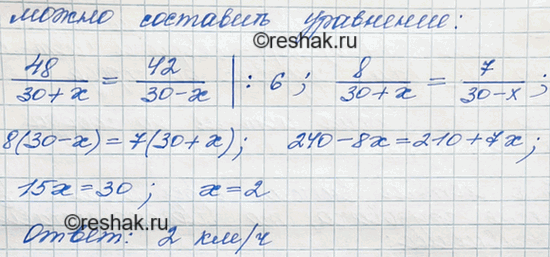 можно составить уравнение:
©reshak.ru
48/(30+x) = 42/(30-x) | : 6 ; 8/(30+x) = 7/(30-x) ;
8(30-x)=7(30+x); 240-8x=210+7x;
15x=30; x=2
©reshak.ru
Ответ: 2 км/ч